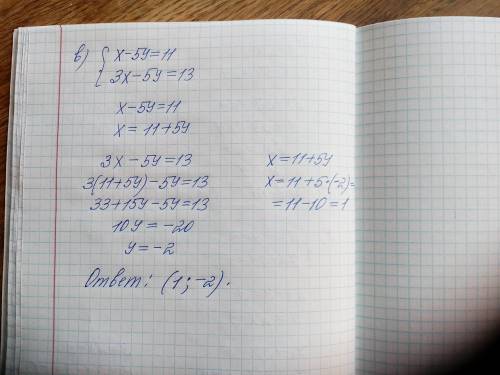 в) { x-5y=11
3x-5y=13
x-5y=11
x=11+5y
3x-5y=13
3(11+5y)-5y=13
33+15y-5y=13
10y=-20
y=-2
x=11+5y
x=11+5·(-2)=
=11-10=1
Ответ: (1;-2).